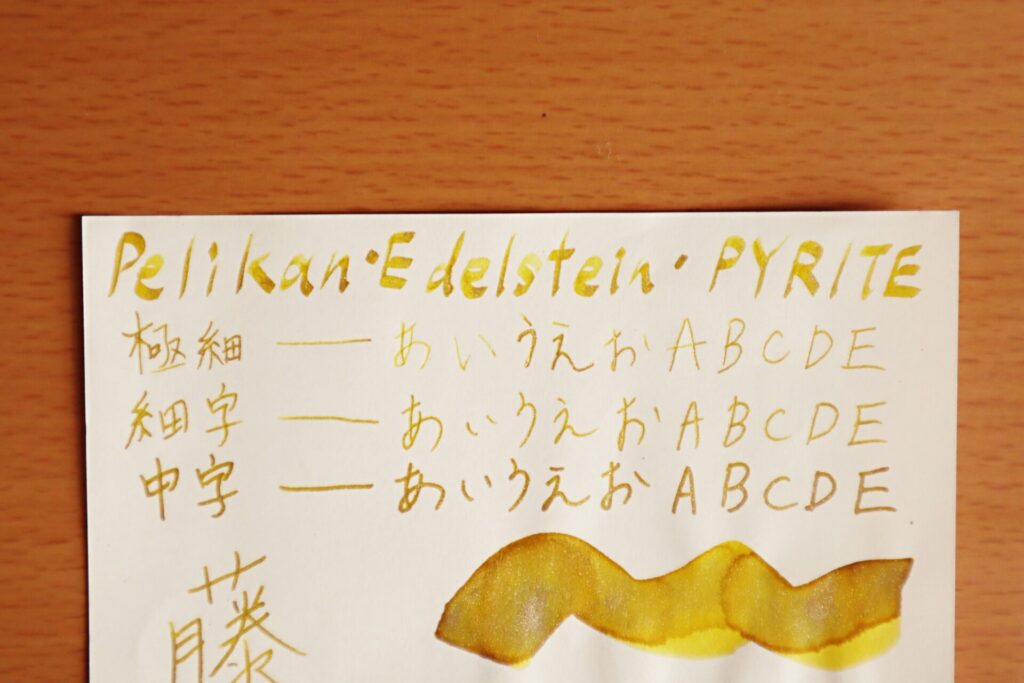 Pelikan・Edelstein・PYRITE
極細 ― あいうえお ABCDE
細字 ― あいうえお ABCDE
中字 ― あいうえお ABCDE
藤